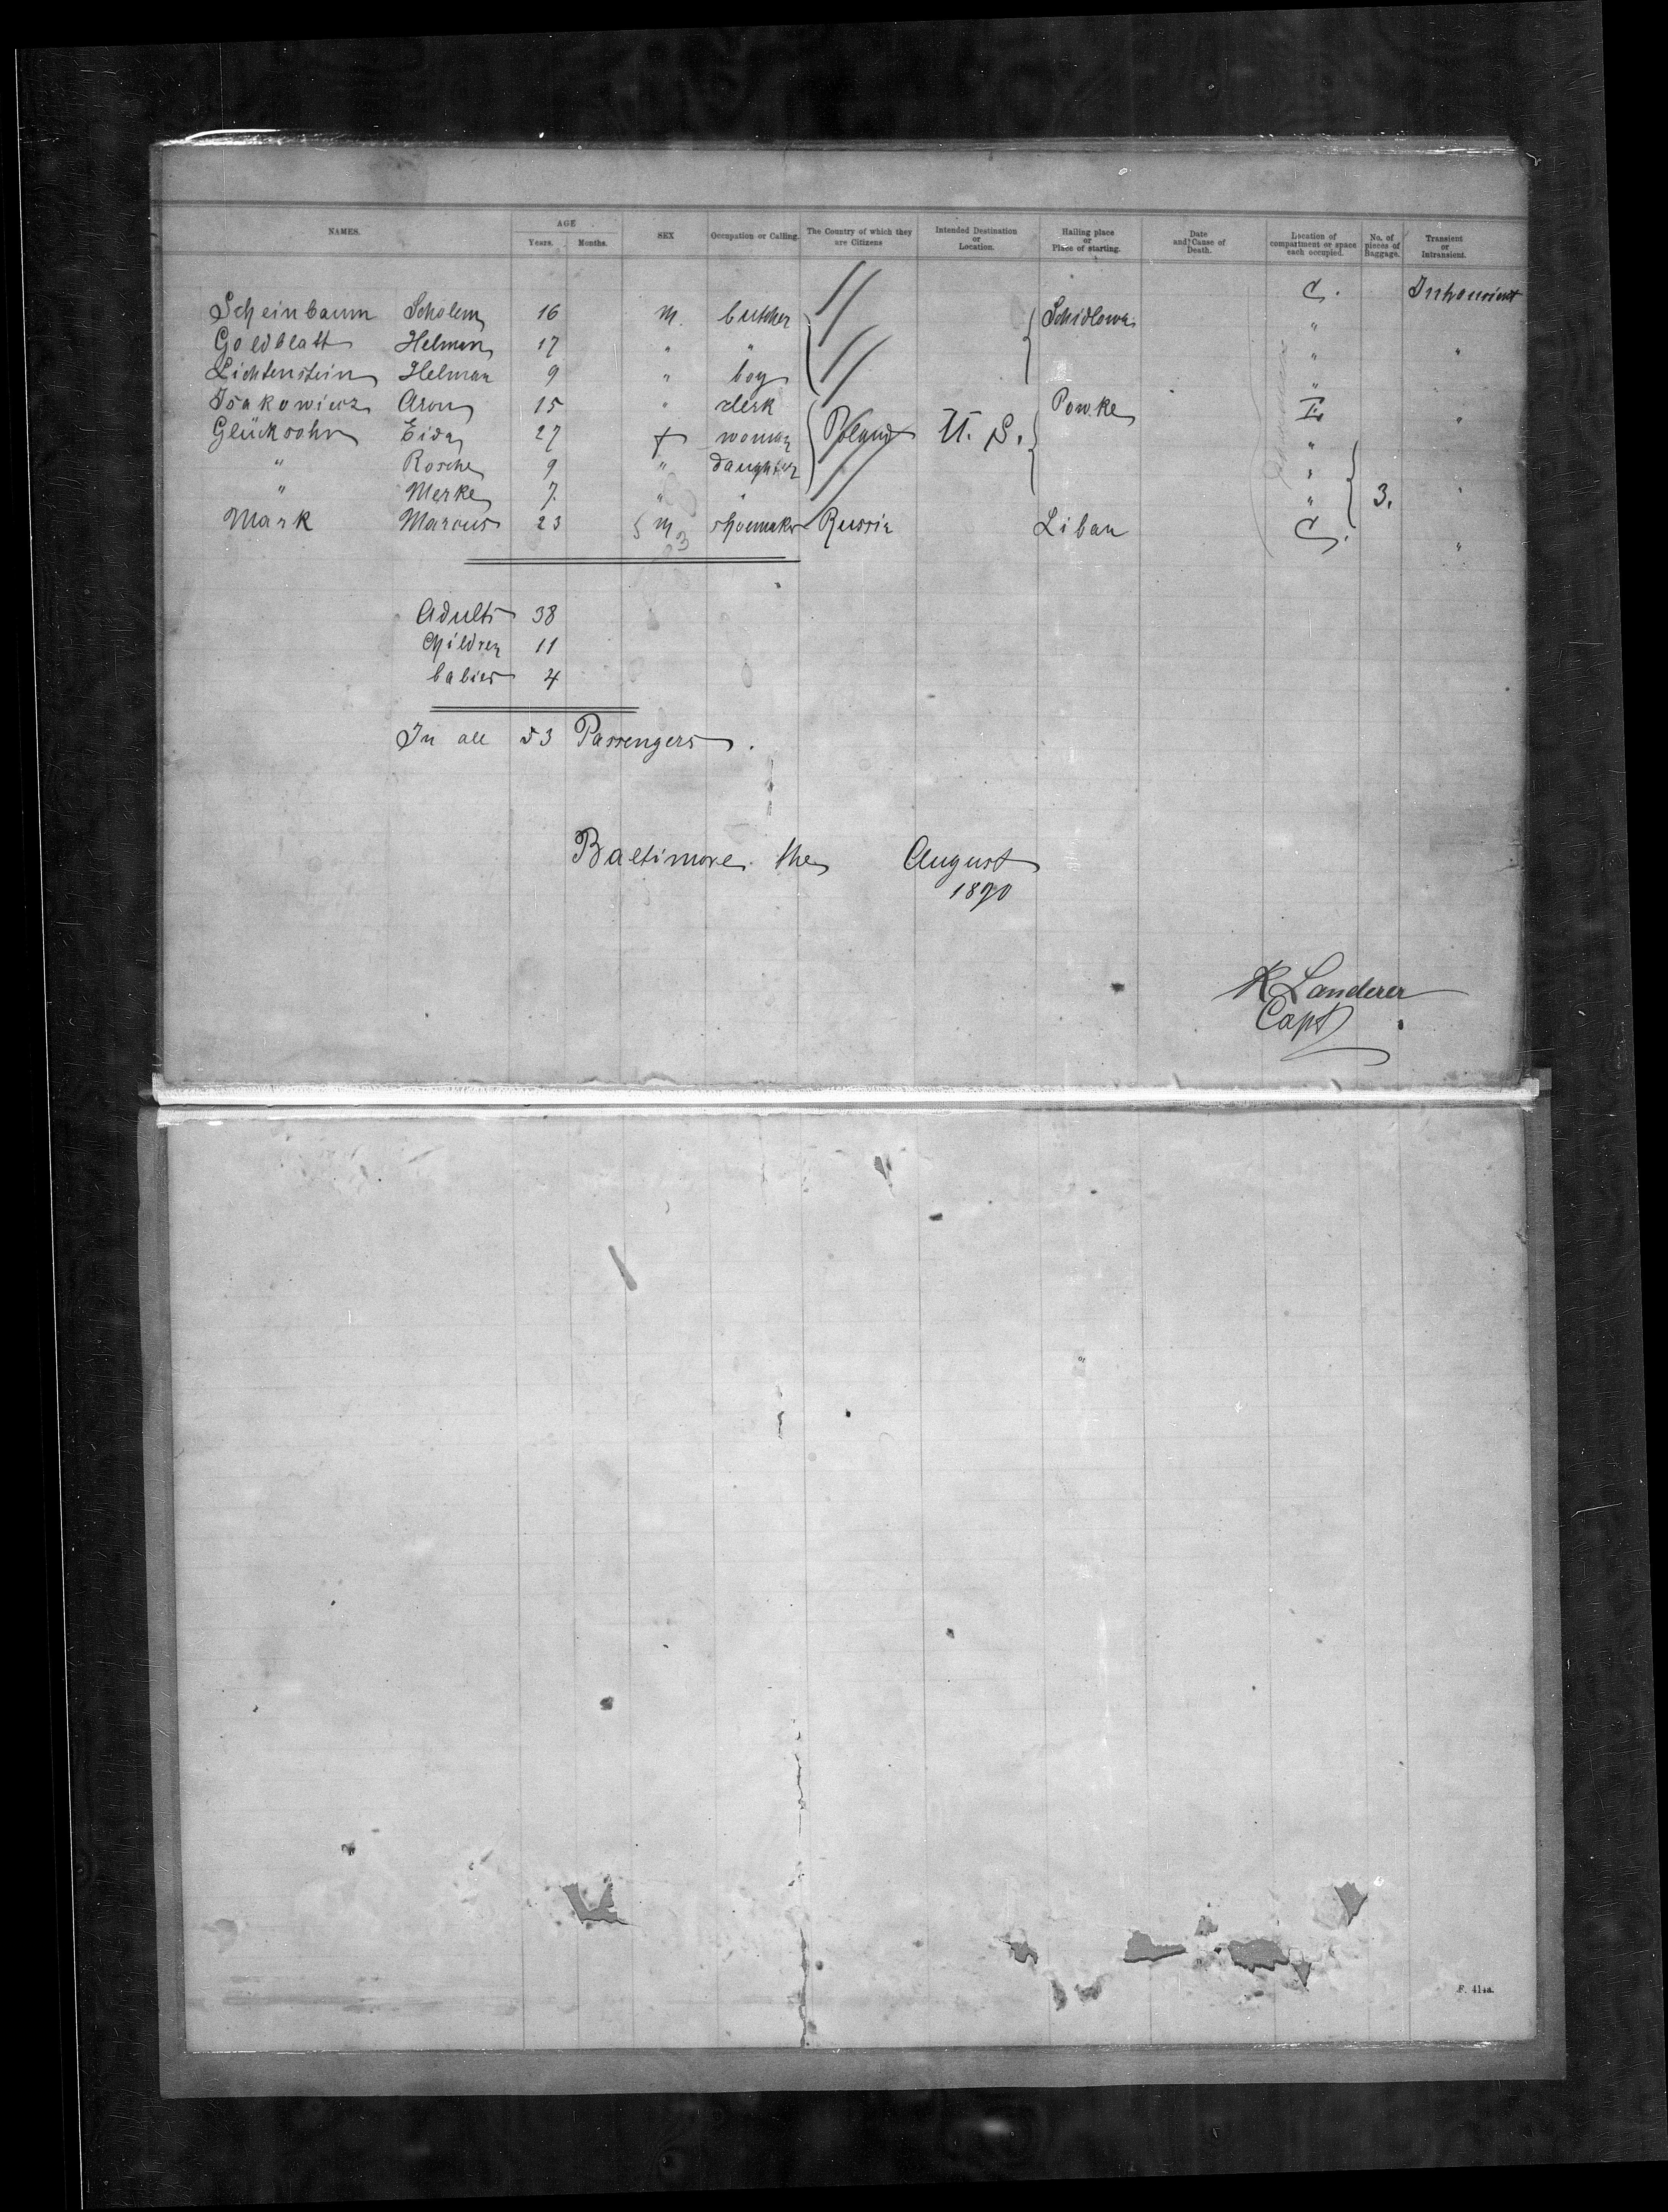 NAMES. AGE SEX Occupation or Calling. The Country of which they are Citizens Intended Destination or Location. Hailing place or Place of starting. Date and Cause of Death. Location of compartment or space each occupied. No. of pieces of Baggage. Transient or Intransient.
Years. Months.
Scheinbaum Scholem 16 m. butcher Schidlowa C. Intransient
Goldblatt Helman 17 " " " "
Lichtenstein Helman 9 " boy "
Isakowicz Aron 15 " clerk Powke "
Glücksohn Eida 27 f woman Poland U. S. " "
" Rosche 9 " daughter "
" Merke 7. " " " 3. "
Mark Marcus 23 m shoemaker Russia Libau C. "
Adults 38
Children 11
babies 4
In all 53 Passengers.
Baltimore the August
1890
R Landerer
Capt
F. 414a.